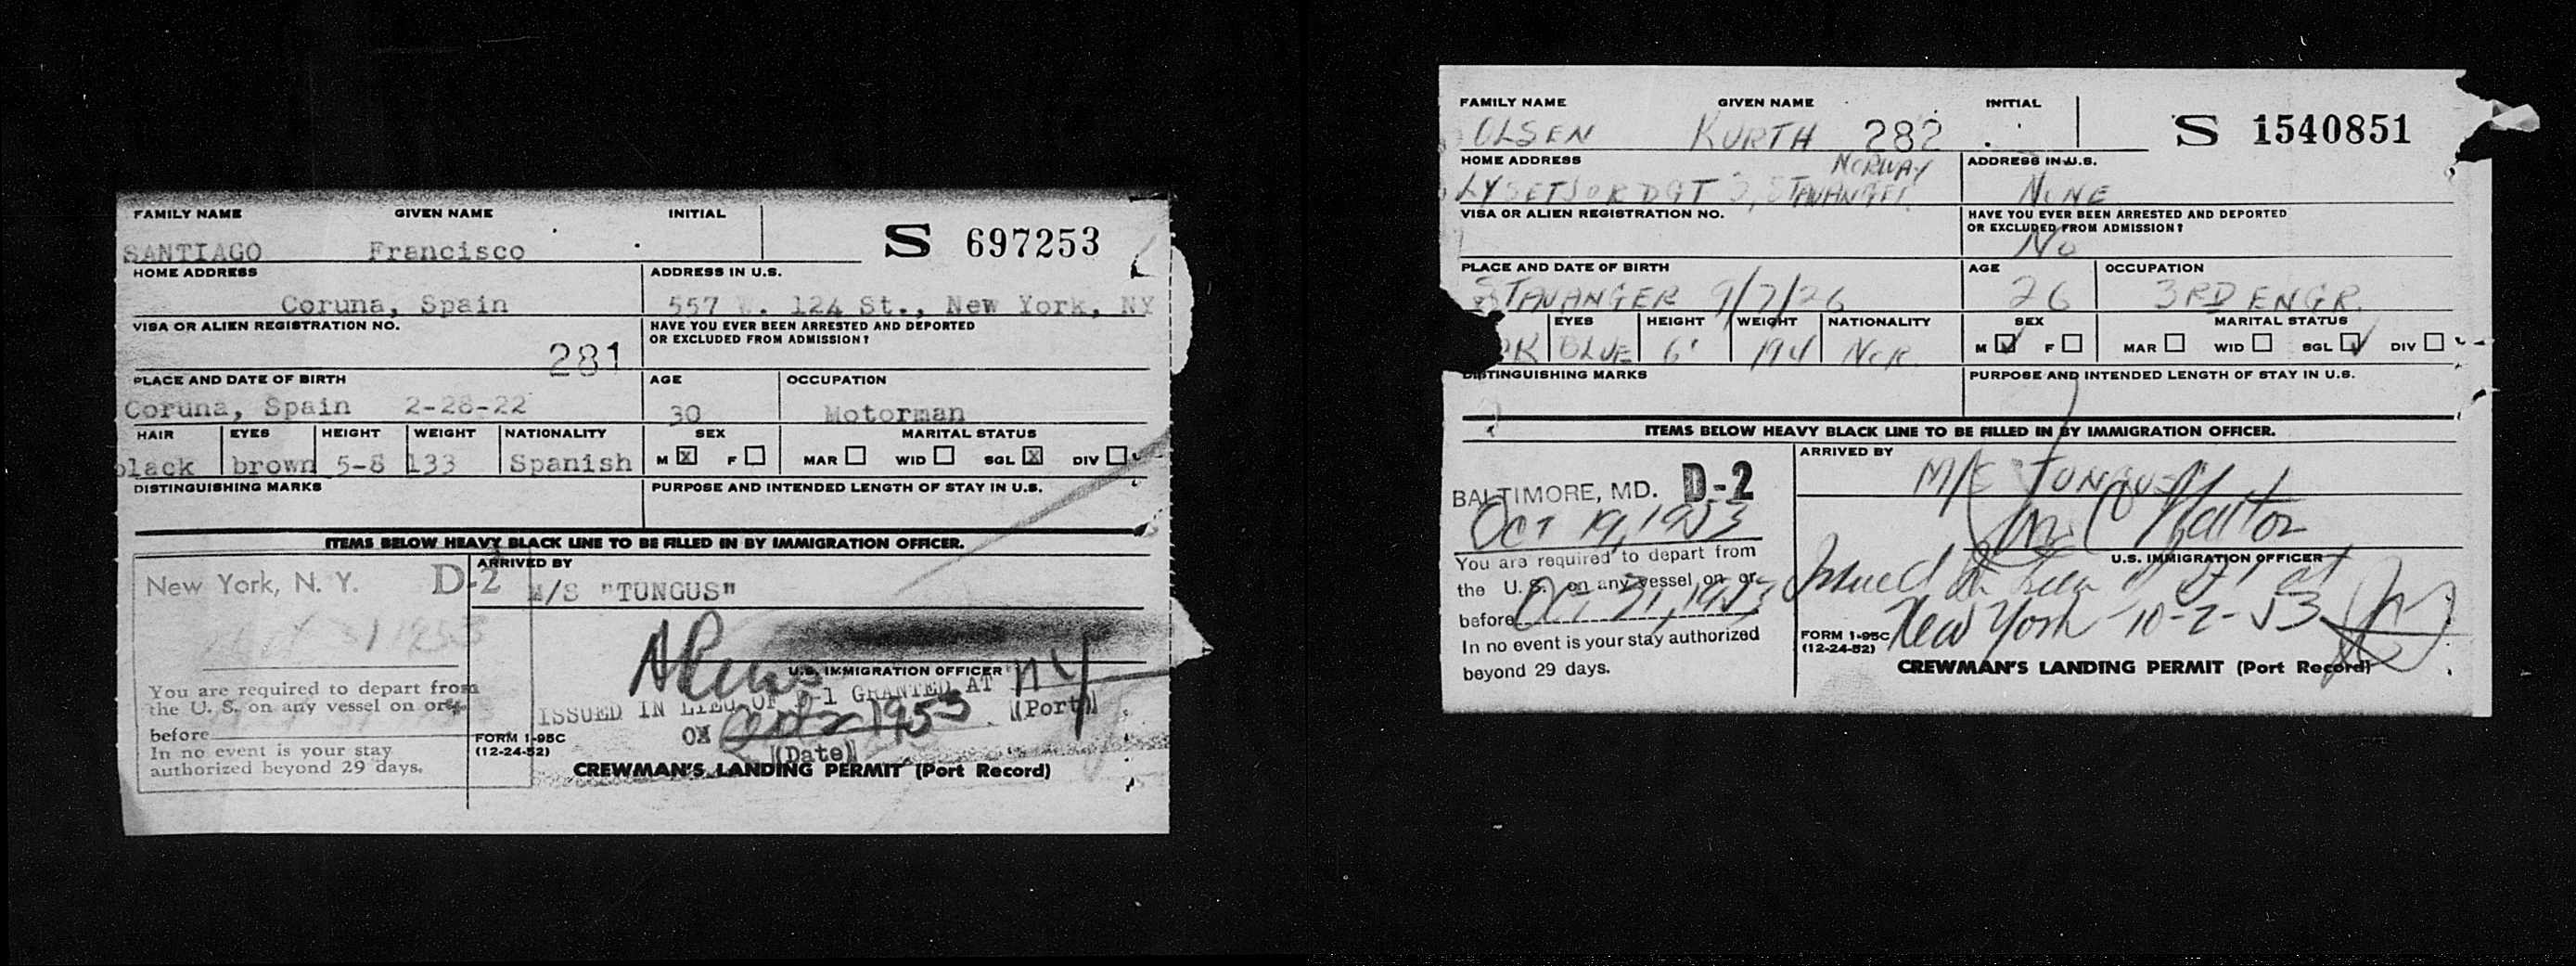 FAMILY NAME GIVEN NAME INITIAL
S 697253
SANTIAGO Francisco
HOME ADDRESS ADDRESS IN U.S.
Coruna, Spain 557 W. 124 St., New York, NY
VISA OR ALIEN REGISTRATION NO. HAVE YOU EVER BEEN ARRESTED AND DEPORTED
OR EXCLUDED FROM ADMISSION?
281
PLACE AND DATE OF BIRTH AGE OCCUPATION
Coruna, Spain 2-28-22 30 Motorman
HAIR EYES HEIGHT WEIGHT NATIONALITY SEX MARITAL STATUS
black brown 5-8 133 Spanish M X F MAR WID SGL X DIV
DISTINGUISHING MARKS PURPOSE AND INTENDED LENGTH OF STAY IN U.S.
ITEMS BELOW HEAVY BLACK LINE TO BE FILLED IN BY IMMIGRATION OFFICER.
ARRIVED BY
New York, N. Y. D-2 M/S "TUNGUS"
U.S. IMMIGRATION OFFICER
You are required to depart from
the U. S. on any vessel on or
before
In no event is your stay
authorized beyond 29 days.
ISSUED IN LIEU OF D-1 GRANTED AT NY
(Port)
ON Oct 2 1953
(Date)
FORM I-95C
(12-24-52)
CREWMAN'S LANDING PERMIT (Port Record)
FAMILY NAME GIVEN NAME INITIAL
S 1540851
OLSEN KURTH 282
HOME ADDRESS ADDRESS IN U.S.
NORWAY
STAVANGER NONE
VISA OR ALIEN REGISTRATION NO. HAVE YOU EVER BEEN ARRESTED AND DEPORTED
OR EXCLUDED FROM ADMISSION?
No
PLACE AND DATE OF BIRTH AGE OCCUPATION
STAVANGER 9/7/26 26 3RD ENGR.
EYES HEIGHT WEIGHT NATIONALITY SEX MARITAL STATUS
BLUE 6' 194 NOR. M F MAR WID SGL DIV
DISTINGUISHING MARKS PURPOSE AND INTENDED LENGTH OF STAY IN U.S.
ITEMS BELOW HEAVY BLACK LINE TO BE FILLED IN BY IMMIGRATION OFFICER.
ARRIVED BY
M/S TUNGUS
BALTIMORE, MD. D-2
Oct 19, 1953
U.S. IMMIGRATION OFFICER
You are required to depart from
the U. S. on any vessel on or
before Oct 31, 1953
In no event is your stay authorized
beyond 29 days.
Issued in lieu of D-1 at
New York 10-2-53
FORM I-95C
(12-24-52)
CREWMAN'S LANDING PERMIT (Port Record)